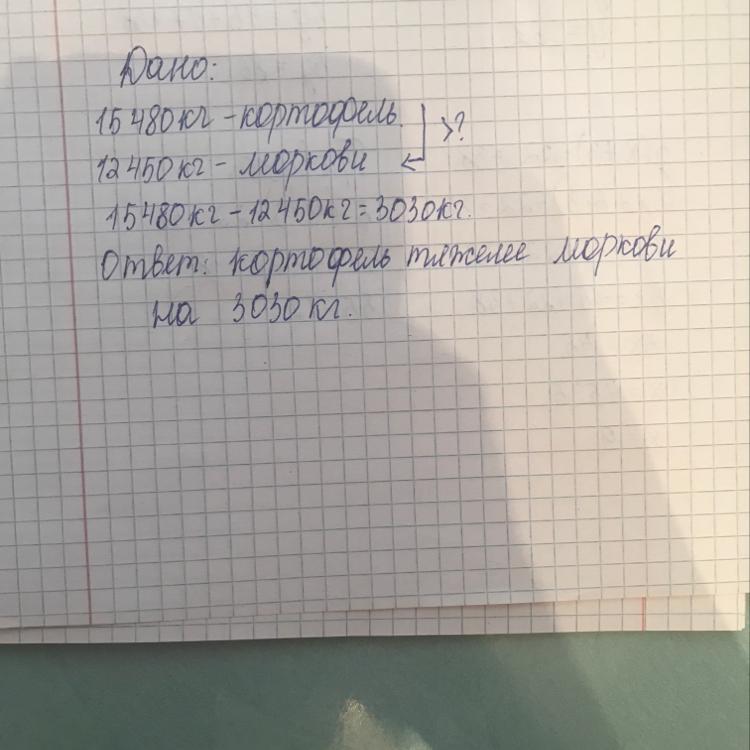 Дано:
15480кг - кортофель. >?
12450кг - моркови
15480кг - 12450кг = 3030кг.
Ответ: кортофель тяжелее моркови
на 3030кг.